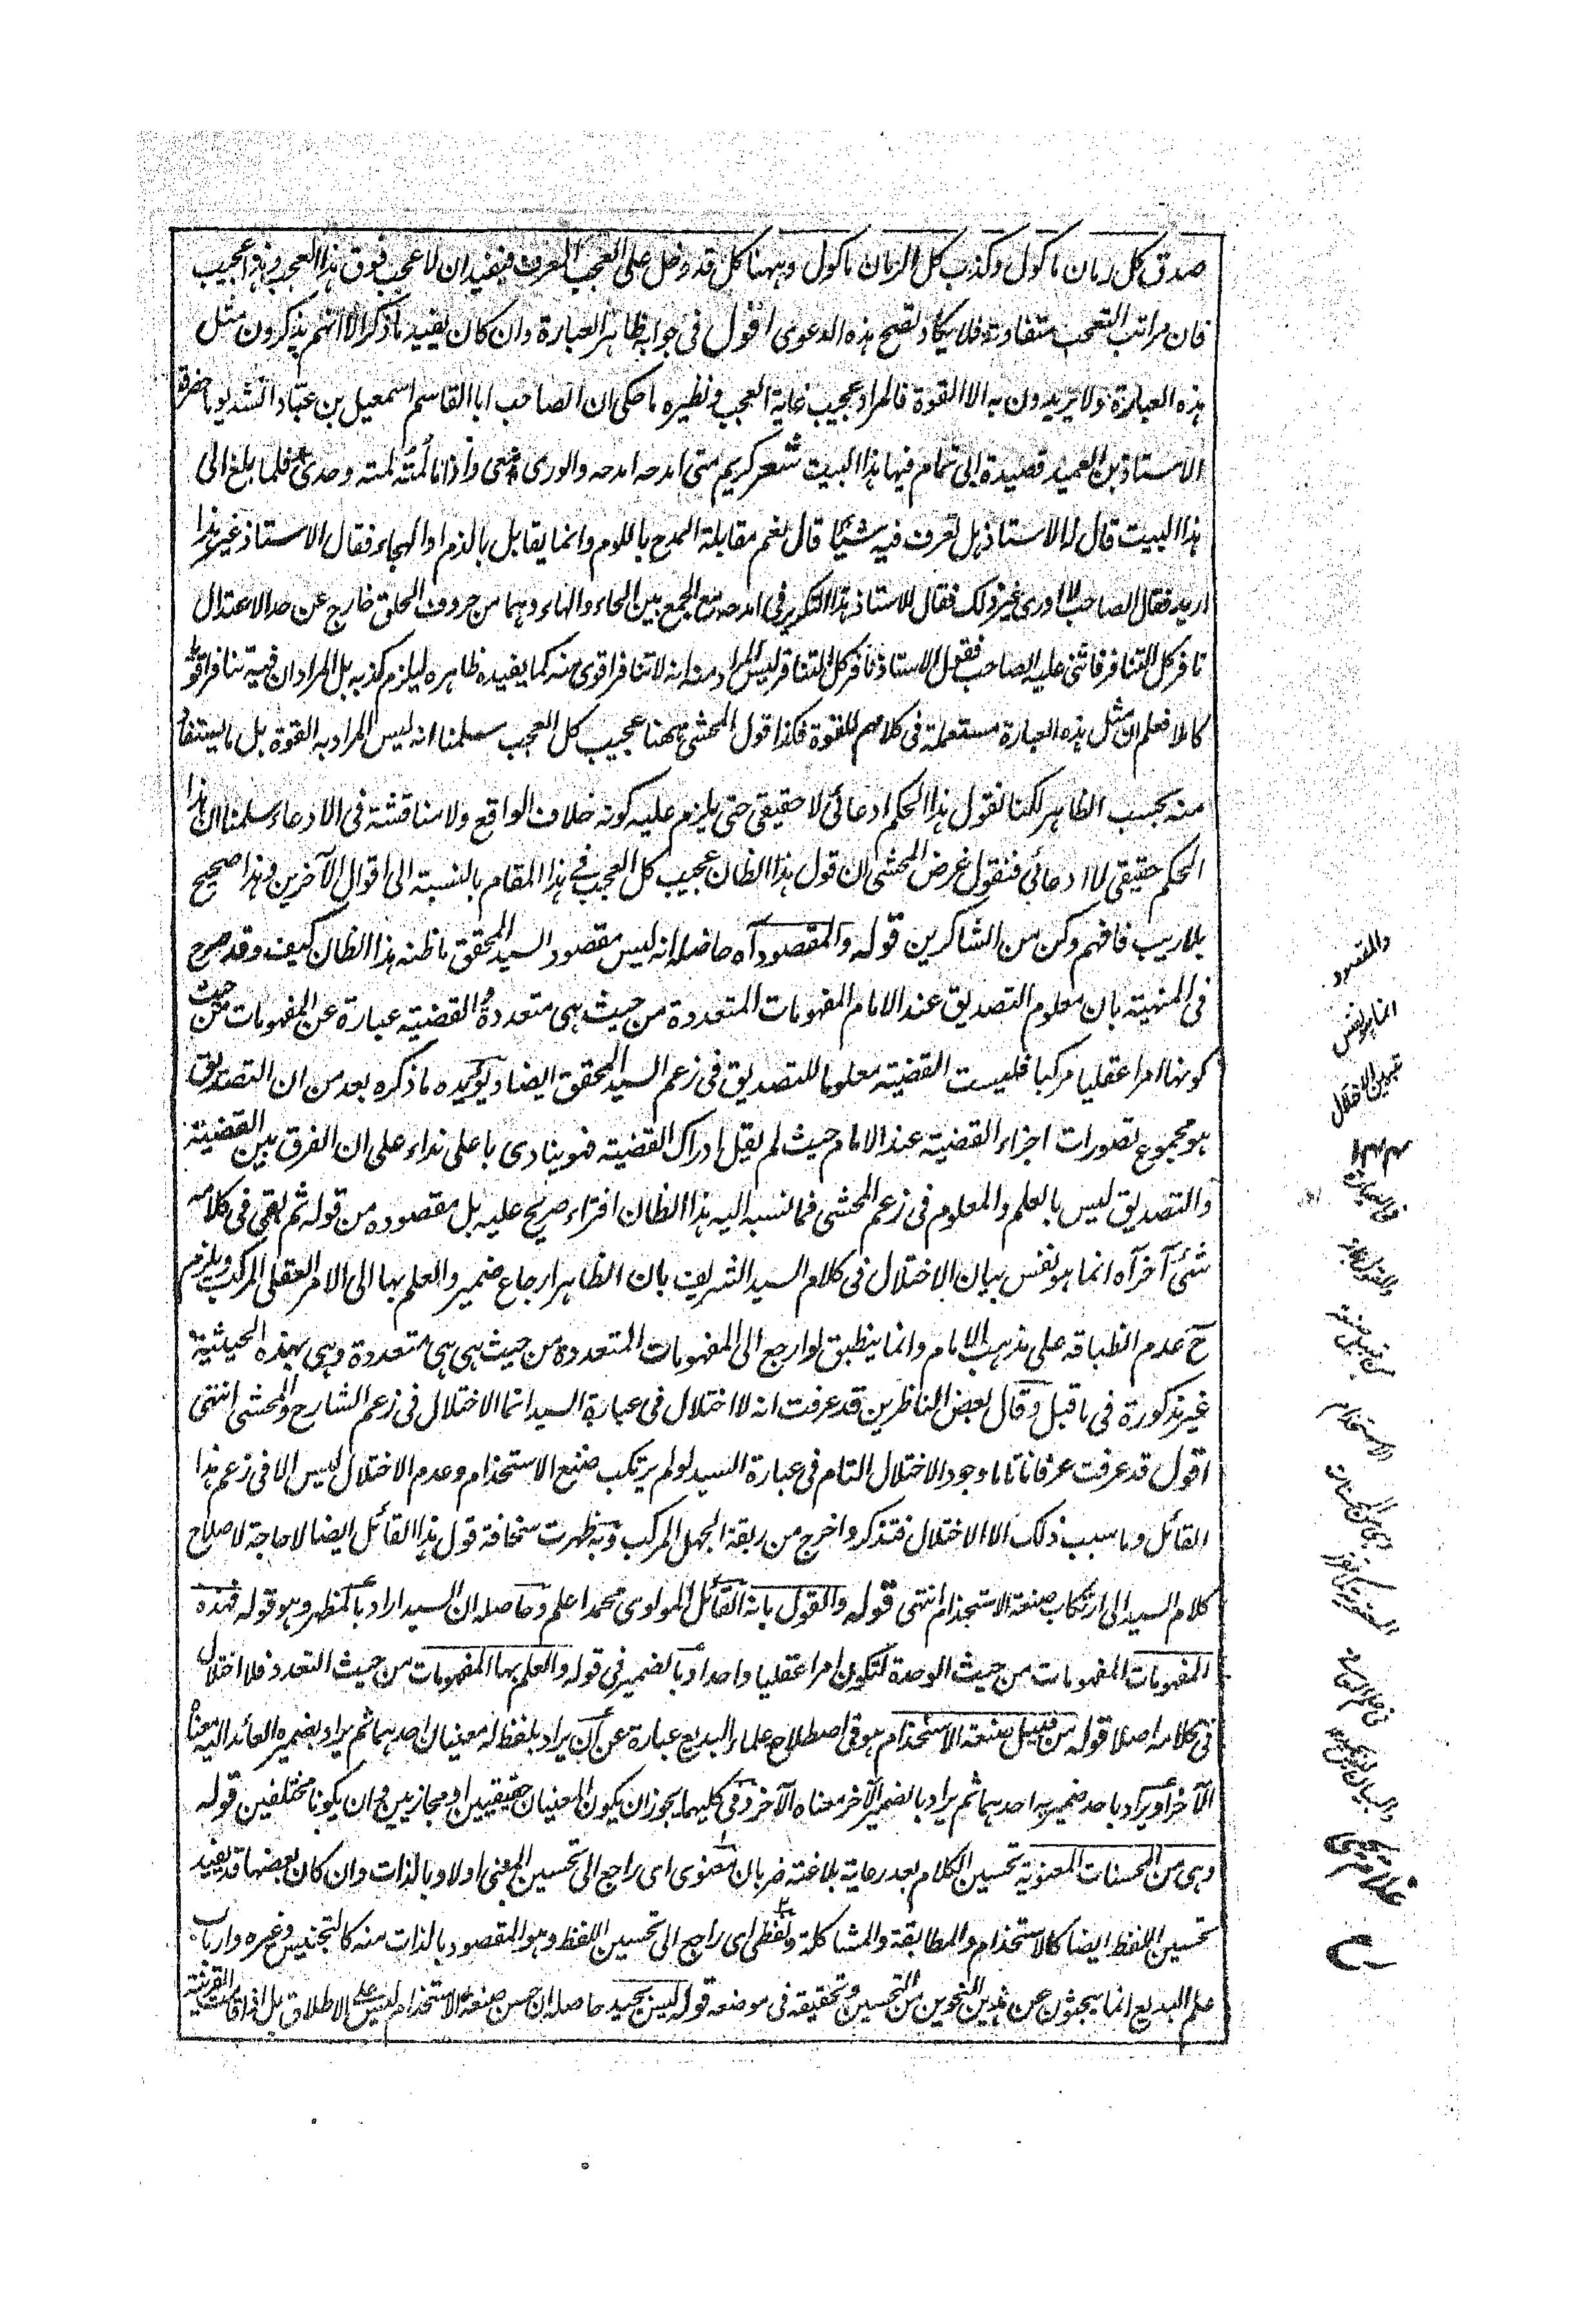 صدق كل زمان ماكول وكذب كل الزمان ماكول وههنا كل قد دخل على العجب المعرف فيفيد ان لا عجب فوق هذا العجب وهذا عجيب
فان مراتب التعجب متفاوتة فلا يكاد تصح هذه الدعوى اقول فى جوابه ظاهر العبارة وان كان يفيد ما ذكر الا انهم يذكرون مثل
هذه العبارة ولا يريدون به الا القوة فالمراد عجيب غاية العجب ونظيره ما حكى ان الصاحب ابا القاسم اسمعيل بن عباد انشد يوما حضرة
الاستاذ بن العميد قصيدة ابى تمام فيها هذا البيت شعر كريم متى امدحه امدحه والورى معى واذا ما لُمتُه لمته وحدى فلما بلغ الى
هذا البيت قال له الاستاذ هل تعرف فيه شيئا قال نعم مقابلة المدح باللوم وانما يقابل بالذم او الهجاء فقال الاستاذ غير هذا
اريد فقال الصاحب لا ادرى غير ذلك فقال الاستاذ هذا التكرير فى امدحه مع الجمع بين الحاء والهاء وهما من حروف الحلق خارج عن حد الاعتدال
نافر كل التنافر فاثنى عليه الصاحب فقول الاستاذ نافر كل التنافر ليس المراد منه انه لا تنافر اقوى منه كما يفيده ظاهره ليلزم كذبه بل المراد ان فيه تنافرا قويا
كاملا فعلم ان مثل هذه العبارة مستعملة فى كلامهم للقوة فكذا قول المحشى ههنا عجيب كل العجب سلمنا انه ليس المراد به القوة بل ما يستفاد
منه بحسب الظاهر لكنا نقول هذا الحكم ادعائى لا حقيقى حتى يلزم عليه كونه خلاف الواقع ولا مناقشة فى الادعاء سلمنا ان هذا
الحكم حقيقى لا ادعائى فنقول غرض المحشى ان قول هذا الظان عجيب كل العجب فى هذا المقام بالنسبة الى اقوال الآخرين وهذا صحيح
بلا ريب فافهم وكن من الشاكرين قوله والمقصود آه حاصله انه ليس مقصود السيد المحقق ما ظنه هذا الظان كيف وقد صرح
فى المنهية بان معلوم التصديق عند الامام المفهومات المتعددة من حيث هى متعددة والقضية عبارة عن المفهومات من حيث
كونها امرا عقليا مركبا فليست القضية معلوما للتصديق فى زعم السيد المحقق ايضا ويؤيده ما ذكره بعد من ان التصديق
هو مجموع تصورات اجزاء القضية عند الامام حيث لم يقل ادراك القضية فهو ينادى باعلى نداء على ان الفرق بين القضية
والتصديق ليس بالعلم والمعلوم فى زعم المحشى فما نسبه اليه هذا الظان افتراء صريح عليه بل مقصوده من قوله ثم بقى فى كلامه
شئ آخر آه انما هو نفس بيان الاختلال فى كلام السيد الشريف بان الظاهر ارجاع ضمير والعلم بها الى الامر العقلى المركب ويلزم
ح عدم انطباقه على مذهب الامام وانما ينطبق لو ارجع الى المفهومات المتعددة من حيث هى هى متعددة وهى بهذه الحيثية
غير مذكورة فى ما قبل وقال بعض الناظرين قد عرفت انه لا اختلال فى عبارة السيد انما الاختلال فى زعم الشارح والمحشى انتهى
اقول قد عرفت عرفانا تاما وجود الاختلال التام فى عبارة السيد لو لم يرتكب صنع الاستخدام وعدم الاختلال ليس الا فى زعم هذا
القائل وما سبب ذلك الا الاختلال فتذكر واخرج من ربقة الجهل المركب وبه ظهرت سخافة قول هذا القائل ايضا لا حاجة لاصلاح
كلام السيد الى ارتكاب صنعة الاستخدام انتهى قوله والقول بانه القائل المولوى محمد اعلم وحاصله ان السيد اراد بالمظهر وهو قوله فهذه
المفهومات المفهومات من حيث الوحدة لتكون امرا عقليا واحدا وبالضمير فى قوله والعلم بها المفهومات من حيث التعدد فلا اختلال
فى كلامه اصلا قوله من قبيل صنعة الاستخدام هو فى اصطلاح علماء البديع عبارة عن ان يراد بلفظ له معنيان احدهما ثم يراد بضميره العائد اليه معناه
الآخر او يراد باحد ضميريه احدهما ثم يراد بالضمير الآخر معناه الآخر وفى كليهما يجوز ان يكون المعنيان حقيقيين او مجازيين وان يكونا مختلفين قوله
وهى من المحسنات المعنوية تحسين الكلام بعد رعاية بلاغته ضربان معنوى اى راجع الى تحسين المعنى اولا وبالذات وان كان بعضها قد يفيد
تحسين اللفظ ايضا كالاستخدام والمطابقة والمشاكلة ولفظى اى راجع الى تحسين اللفظ وهو المقصود بالذات منه كالتجنيس وغيره وارباب
علم البديع انما يبحثون عن هذين النحوين من التحسين وتحقيقه فى موضعه قوله ليس بجيد حاصله ان حسن صنعة الاستخدام ليس على الاطلاق بل اذا قامت القرينة
والمقصود
انما هو نفس
بيان الاختلال
فى العبارة
والقول بانه
من قبيل صنعة
الاستخدام
وهى من المحسنات
المعنوية